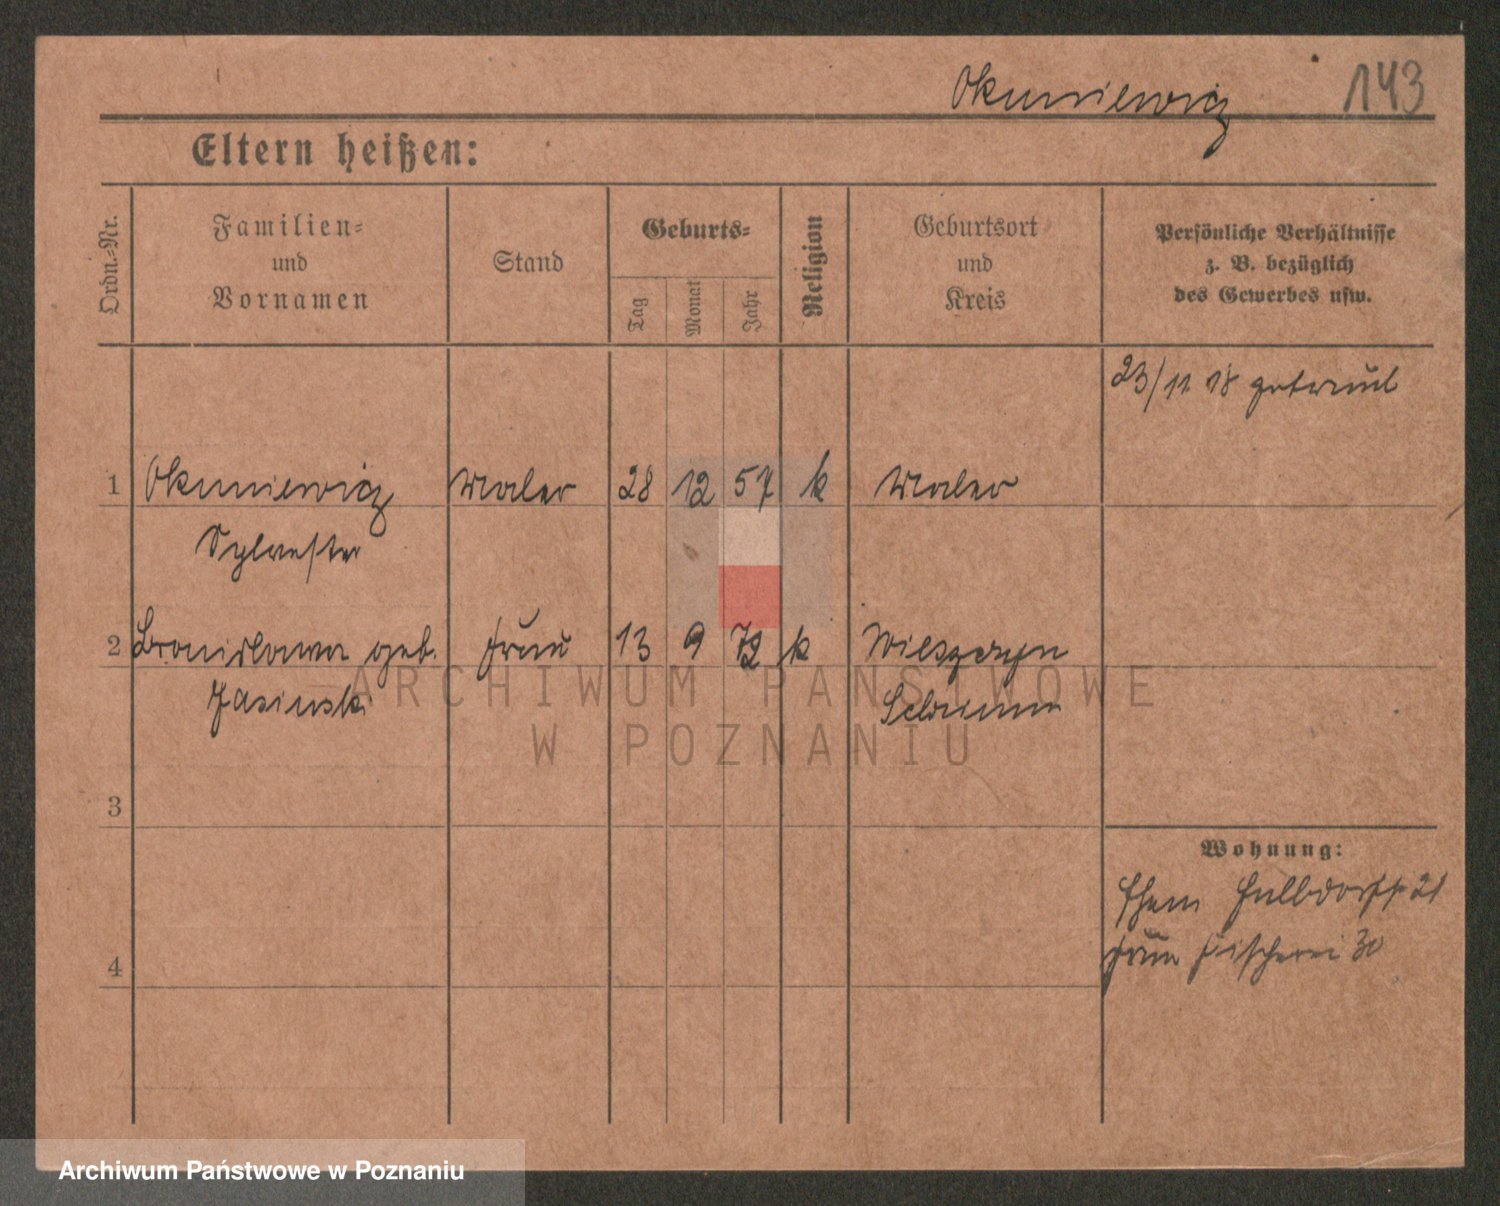 Okuniewicz 143
Eltern heißen:
Ordn.-Nr. Familien- und Vornamen Stand Geburts- Tag Monat Jahr Religion Geburtsort und Kreis Persönliche Verhältnisse z. B. bezüglich des Gewerbes usw.
23/11 18 getraut
1 Okuniewicz Maler 28 12 57 k
Sylvester
2 Bronislawa geb. Frau 13 9 72 k
Jasinski
ARCHIWUM PAŃSTWOWE
W POZNANIU
3
Wohnung:
21
4 Frau Fischerei 30
Archiwum Państwowe w Poznaniu